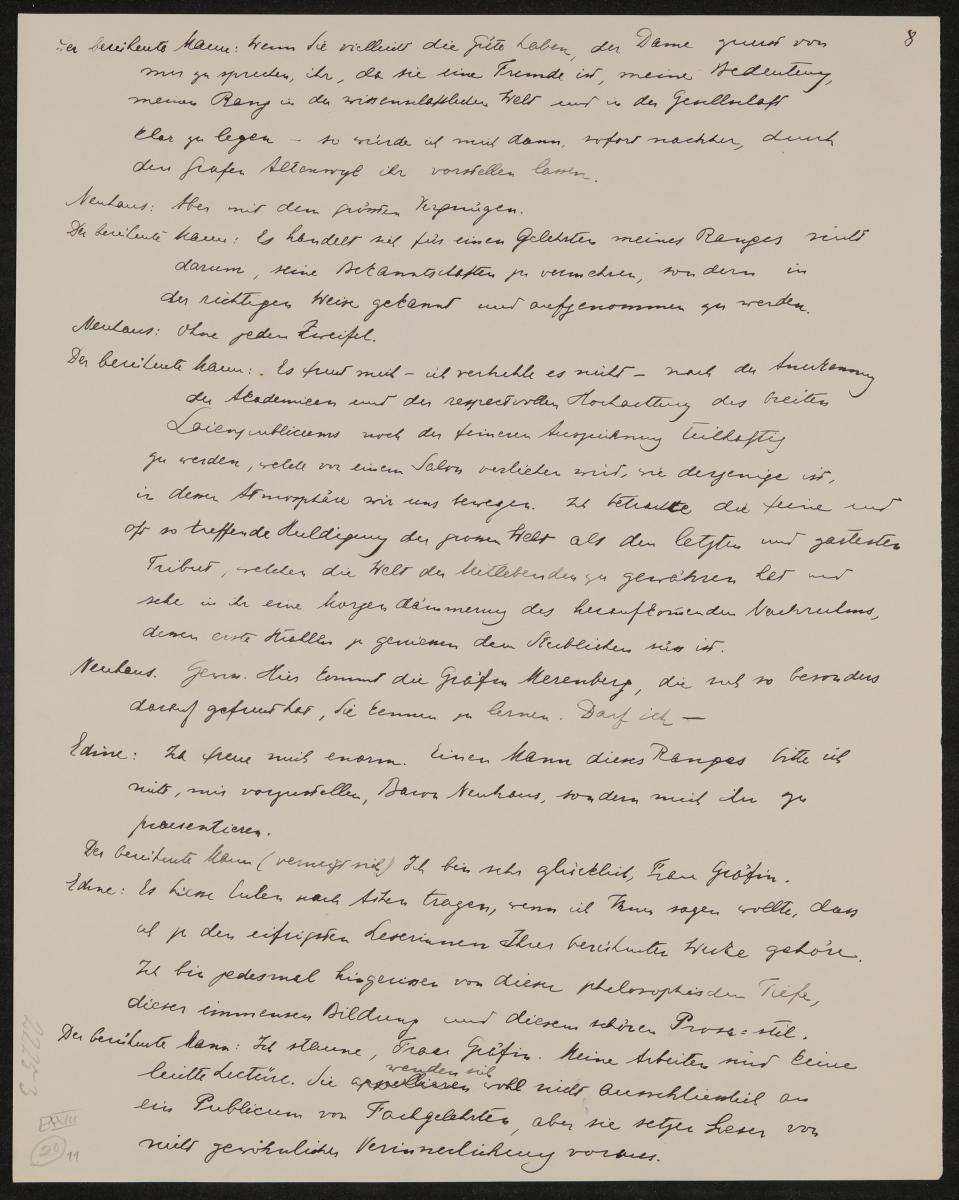 8
Der berühmte Mann: Wenn Sie vielleicht die Güte haben, der Dame zuerst von
mir zu sprechen, ihr, da sie eine Fremde ist, meine Bedeutung,
meinen Rang in der wissenschaftlichen Welt und in der Gesellschaft
klar zu legen – so würde ich mich dann, sofort nachher, durch
den Grafen Altenwyl ihr vorstellen lassen.
Neuhaus: Aber mit dem grössten Vergnügen.
Der berühmte Mann: Es handelt sich für einen Gelehrten meines Ranges nicht
darum, seine Bekanntschaften zu vermehren, sondern in
der richtigen Weise gekannt und aufgenommen zu werden.
Neuhaus: Ohne jeden Zweifel.
Der berühmte Mann: Es freut mich – ich verhehle es nicht – nach der Anerkennung
der Akademieen und der respectvollen Hochachtung des breiten
Laienpublicums noch der feineren Auszeichnung teilhaftig
zu werden, welche von einem Salon verliehen wird, wie derjenige ist,
in dessen Atmosphäre wir uns bewegen. Ich betrachte die feine und
oft so treffende Huldigung der grossen Welt als den letzten und zartesten
Tribut, welchen die Welt der Mitlebenden zu gewähren hat und
sehe in ihr eine Morgendämmerung des heraufkommenden Nachruhms,
dessen erste Strahlen zu geniessen dem Sterblichen süss ist.
Neuhaus. Gewiss. Hier kommt die Gräfin Merenberg, die sich so besonders
darauf gefreut hat, Sie kennen zu lernen. Darf ich –
Edine: Ich freue mich enorm. Einen Mann dieses Ranges bitte ich
nicht, mir vorzustellen, Baron Neuhaus, sondern mich ihm zu
praesentieren.
Der berühmte Mann (verneigt sich) Ich bin sehr glücklich, Frau Gräfin.
Edine: Es hiesse Eulen nach Athen tragen, wenn ich Ihnen sagen wollte, dass
ich zu den eifrigsten Leserinnen Ihrer berühmten Werke gehöre.
Ich bin jedesmal hingerissen von dieser philosophischen Tiefe,
dieser immensen Bildung und diesem schönen Prosa=stil.
Der berühmte Mann: Ich staune, Frau Gräfin. Meine Arbeiten sind keine
wenden sich
leichte Lectüre. Sie appellieren wohl nicht ausschliesslich an
ein Publicum von Fachgelehrten, aber sie setzen Leser von
nicht gewöhnlicher Verinnerlichung voraus.
2225-3
EXXIII
20
11